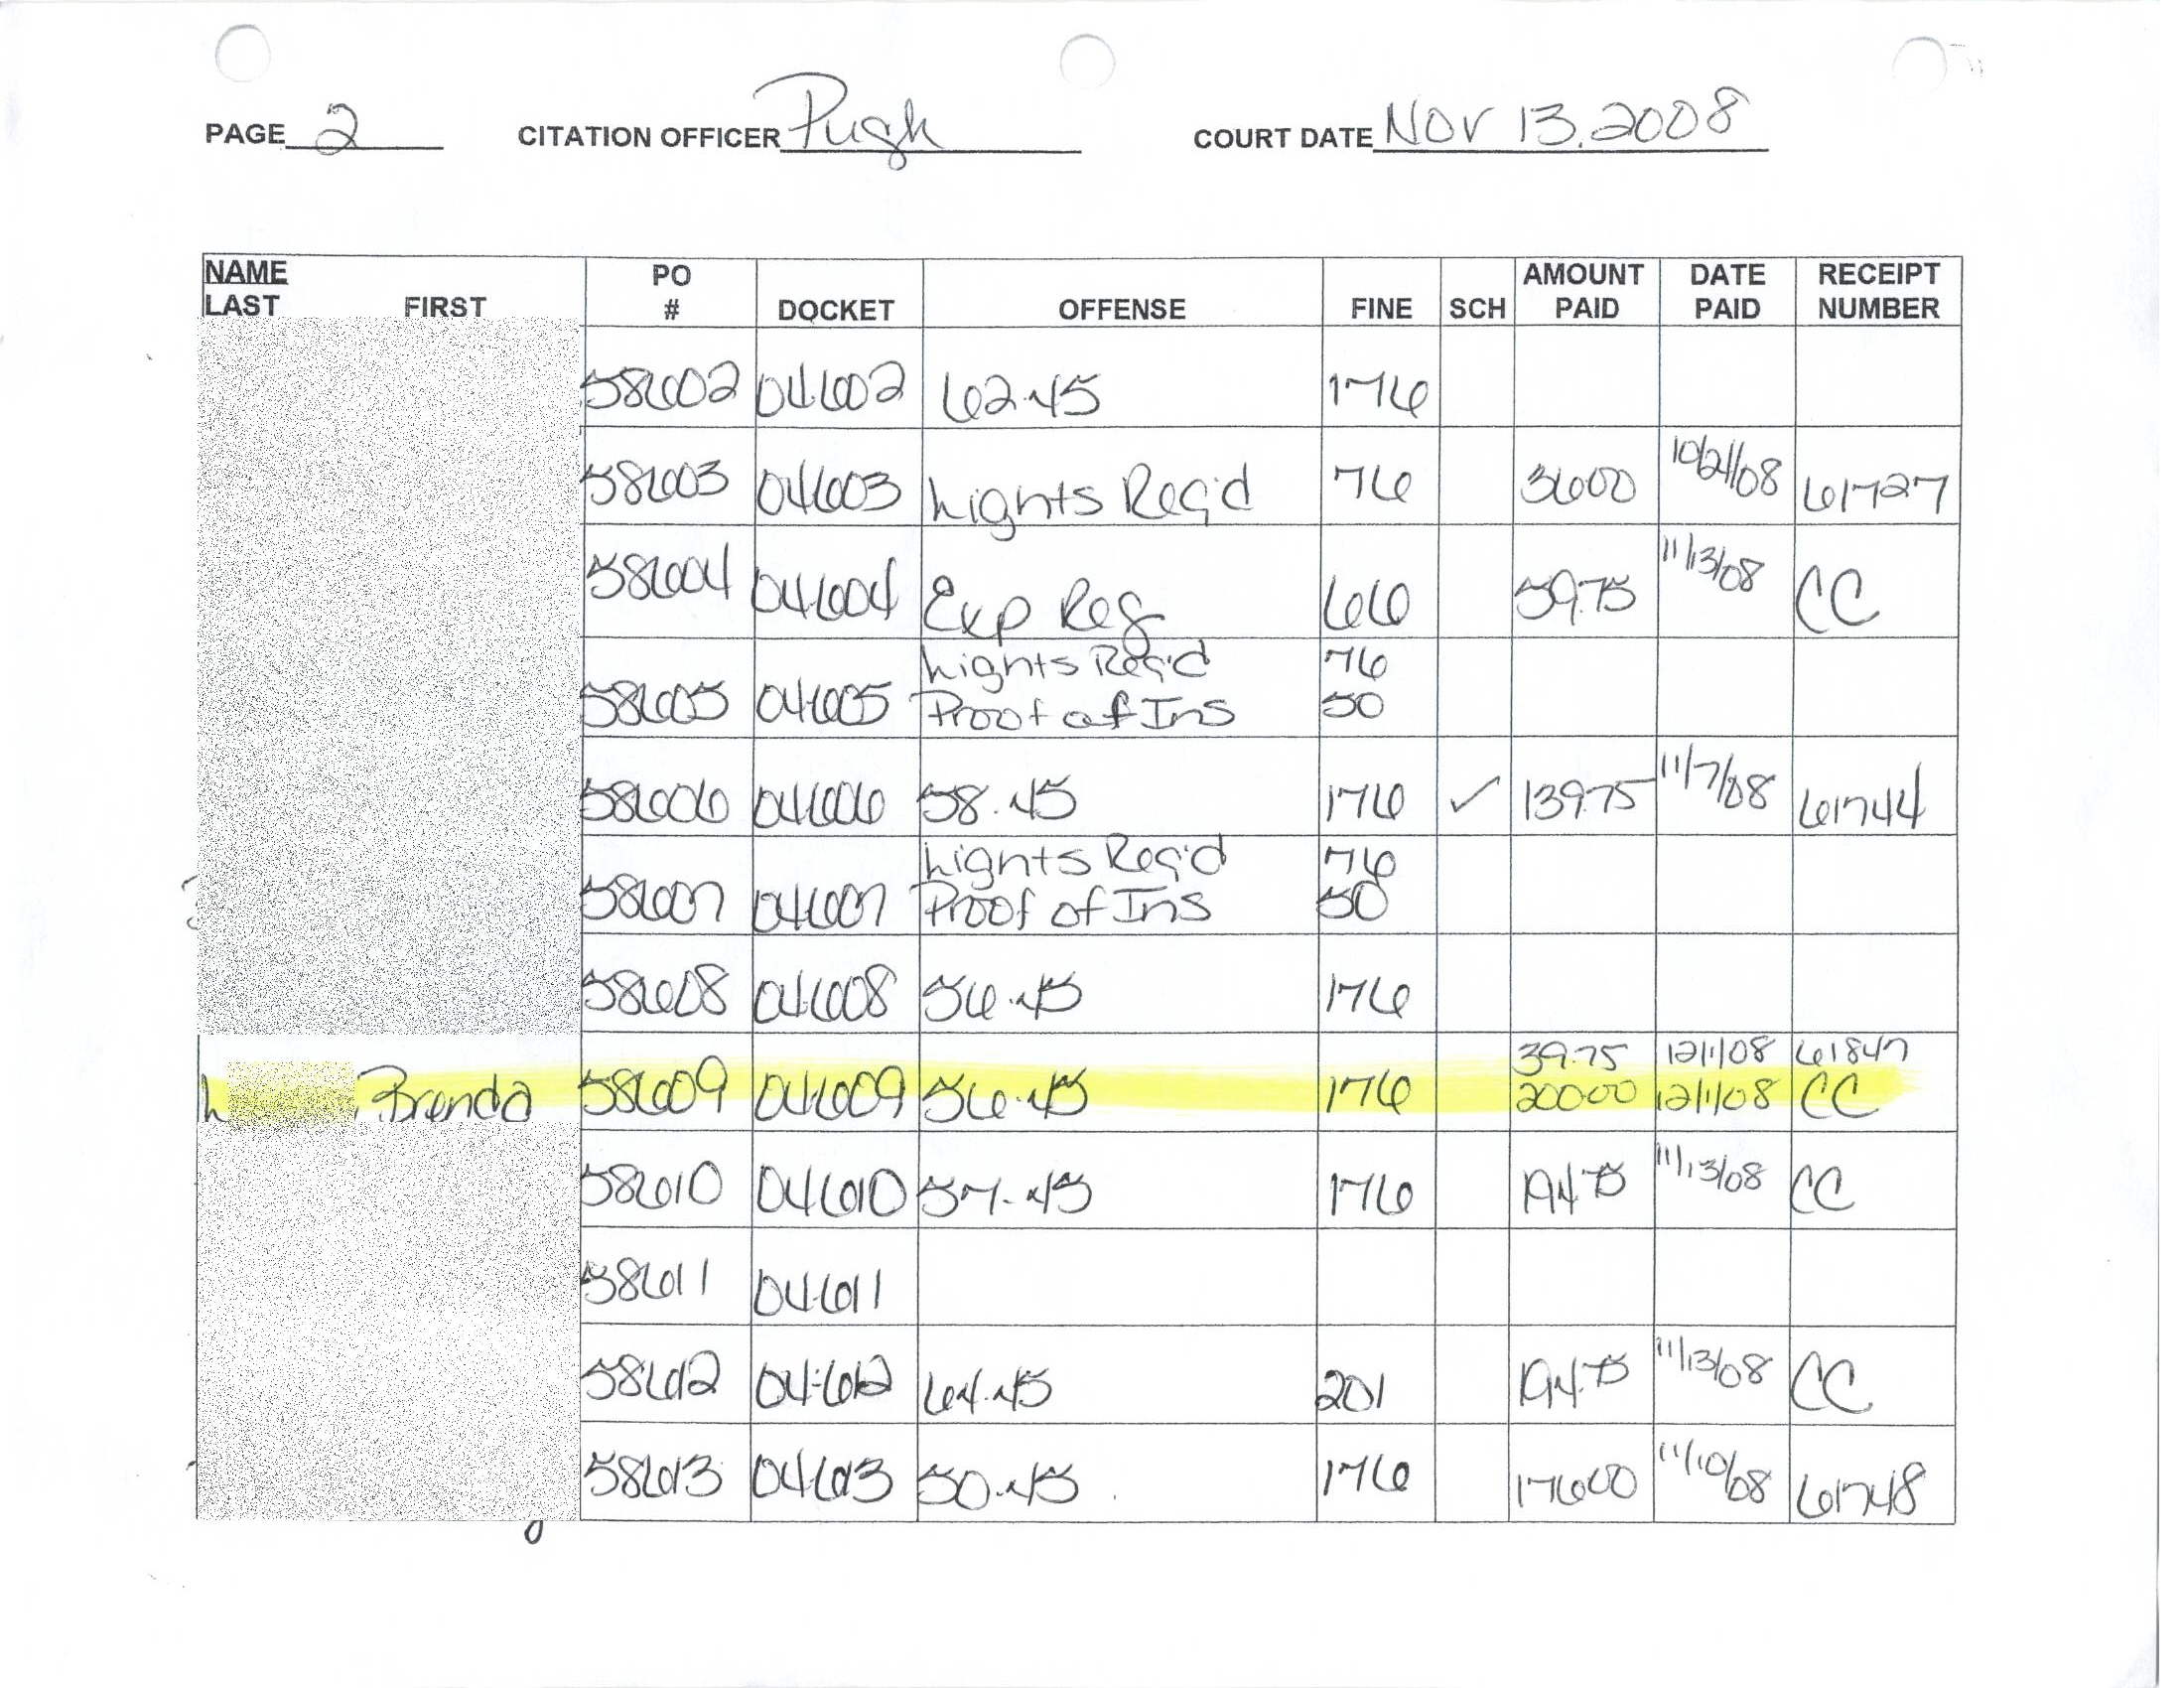 PAGE 2 CITATION OFFICER Pugh COURT DATE Nov 13, 2008
NAME PO AMOUNT DATE RECEIPT
LAST FIRST # DOCKET OFFENSE FINE SCH PAID PAID NUMBER
58602 04602 62.45 176
58603 04603 Lights Req'd 76 3600 10/21/08 61727
58604 04604 Exp Reg 66 59.75 11/13/08 CC
Lights Req'd 76
58605 04605 Proof of Ins 50
58606 04606 58.45 176 ✓ 139.75 11/7/08 61744
Lights Req'd 76
58607 04607 Proof of Ins 50
58608 04608 56.45 176
39.75 12/1/08 61847
L Brenda 58609 04609 56.45 176 20000 12/1/08 CC
58610 04610 57.45 176 194.75 11/13/08 CC
58611 04611
58612 04612 64.45 201 194.75 11/13/08 CC
58613 04613 50.45 176 17600 11/10/08 61748